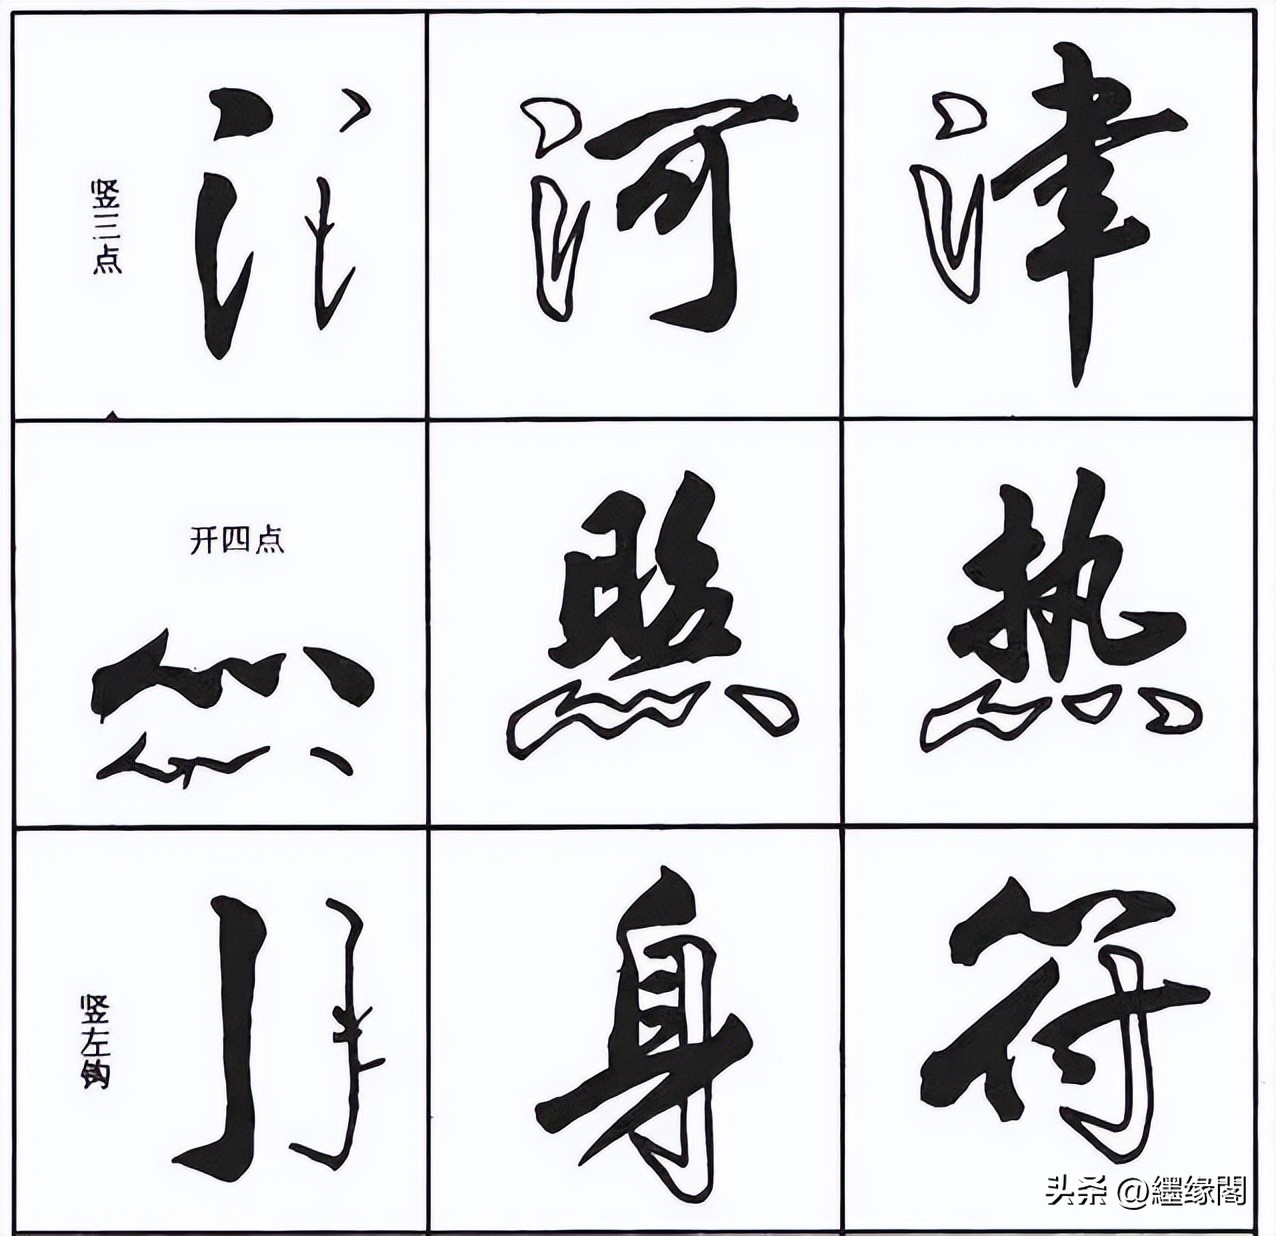 竖三点
河
津
开四点
照
热
竖左钩
身
符
头条 @繧缘閣